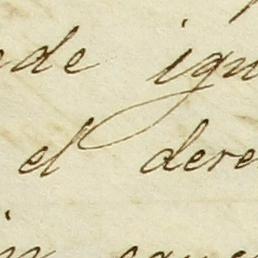 ede igu
el dere